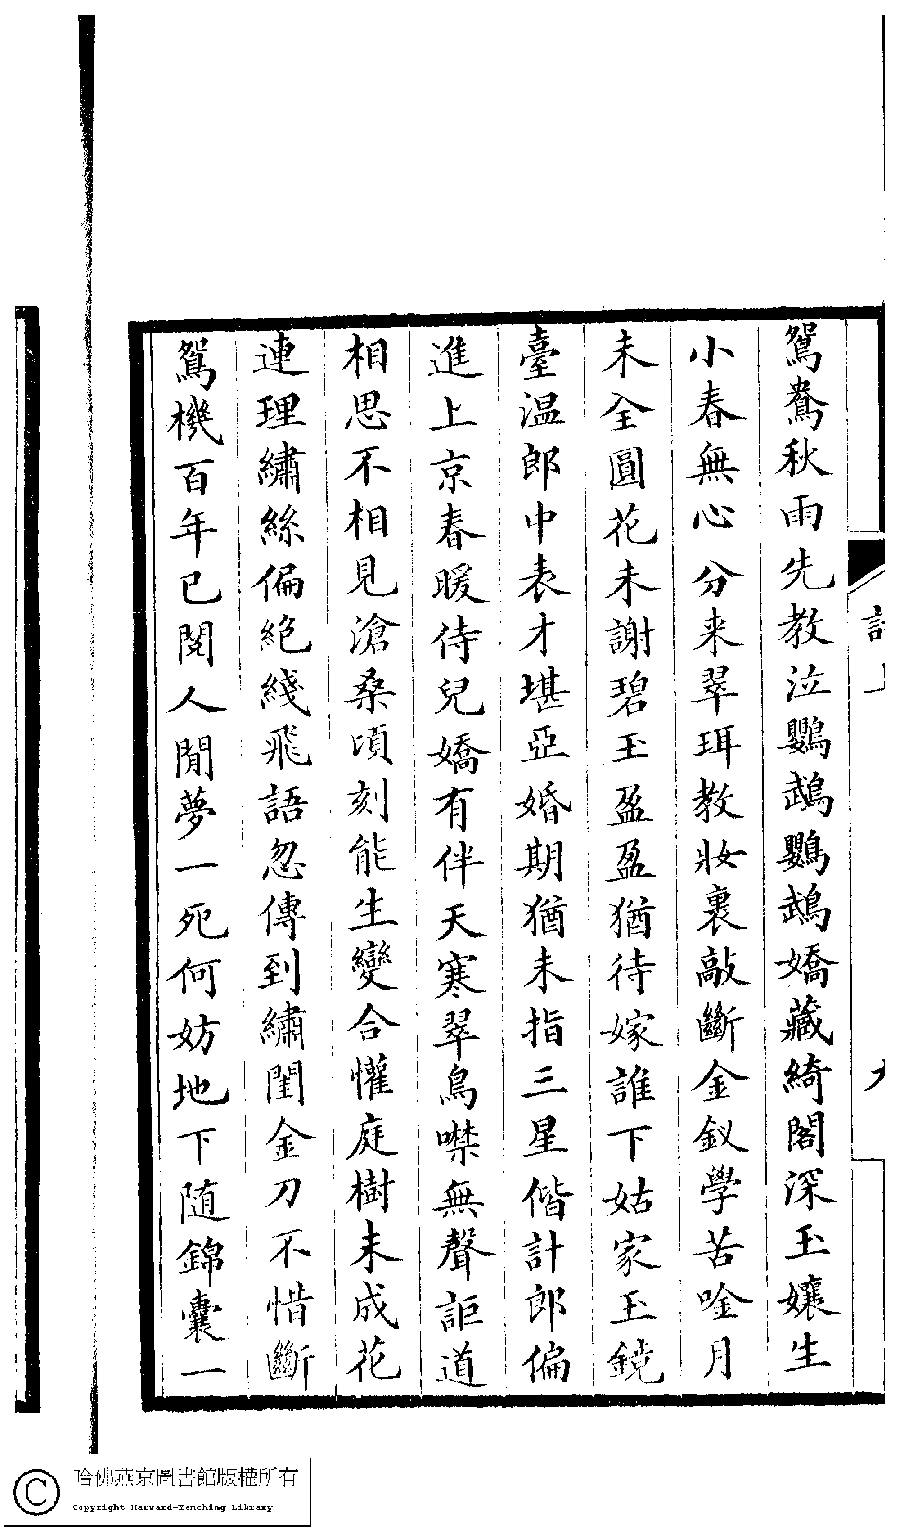 鴛鴦秋雨先教泣鸚鵡鸚鵡嬌藏綺閣深玉孃生
小春無心分来翠珥教妝裹敲斷金釵學苦唫月
未全圓花未謝碧玉盈盈猶待嫁誰下姑家玉鏡
臺溫郎中表才堪亞婚期猶未指三星偕計郎偏
進上京春暖侍兒嬌有伴天寒翠鳥噤無聲詎道
相思不相見滄桑頃刻能生變合懽庭樹未成花
連理繡絲偏絶綫飛語忽傳到繡閨金刀不惜斷
鴛機百年已閱人間夢一死何妨地下随錦囊一
哈佛燕京圖書館版權所有
Copyright Harvard-Yenching Library